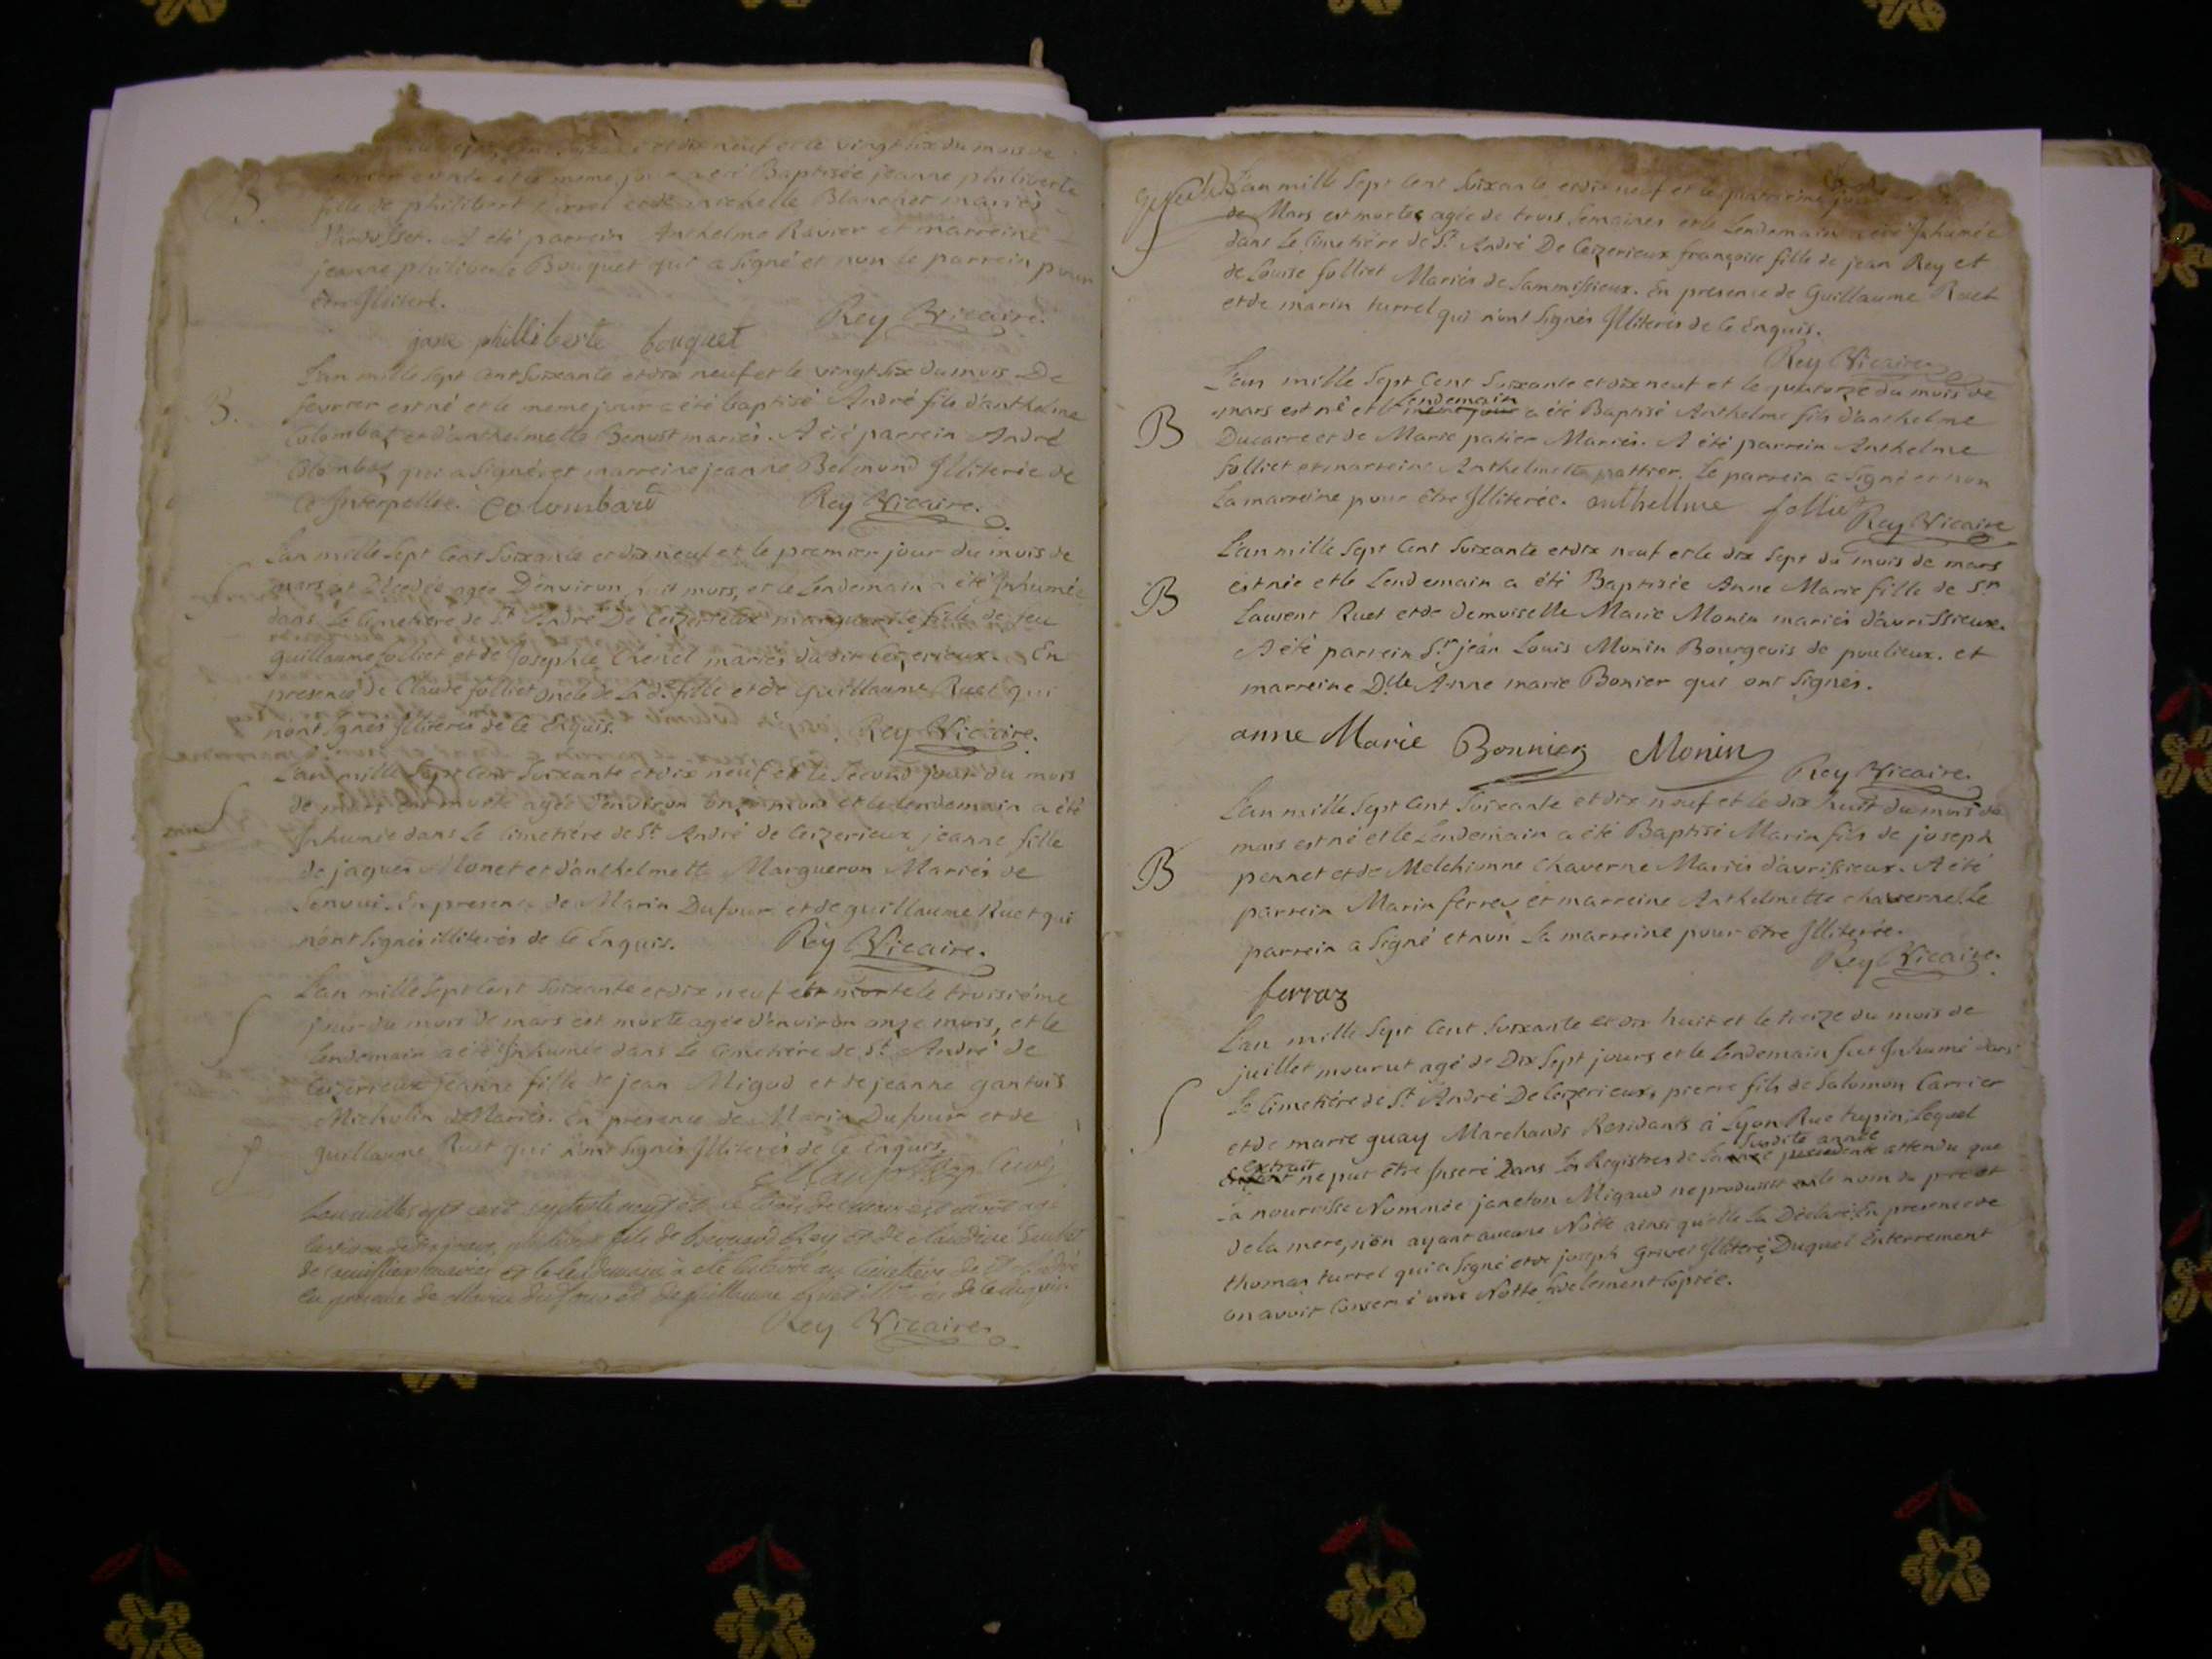 sept cent soixante et dix neuf et le vingt six du mois de
et le meme jour a été Baptisée jeanne philiberte
B.
fille de philibert et de michelle Blanchet mariés
A été parrein Anthelme Ravier et marreine
jeanne philiberte Bouquet qui a signé et non le parrein pour
être Illiteré.
Rey Vicaire.
jane philliberte bouquet
L'an mille sept cent soixante et dix neuf et le vingt six du mois De
B.
fevrier est né et le meme jour a été baptisé André fils d'anthelme
Colombaz et d'anthelmette Benoit mariés. A été parrein André
Colombaz qui a signé, et marreine jeanne Belmond Illiterée de
ce Interpellée. Colombard Rey Vicaire.
L'an mille sept cent soixante et dix neuf et le premier jour du mois de
S
mars est décedée agée D'environ huit mois, et le lendemain a été Inhumée
dans le Cimetiere de St André De Ceizerieux marguerite fille de feu
guillaume folliet et de Josephte Chenel mariés du dit Ceizerieux. En
presence de Claude folliet oncle de La de fille et de guillaume Ruet qui
n'ont signés Illiterés de ce Enquis. Rey Vicaire.
L'an mille sept cent soixante et dix neuf et le second jour du mois
S
de mars est morte agée d'environ onze mois et le lendemain a été
Inhumée dans le Cimetiére de St André de Ceizerieux jeanne fille
de jaques Monet et d'anthelmette Margueron Mariés de
En presence de Marin Dufour et de guillaume Ruet qui
n'ont signés illiterés de ce Enquis. Rey Vicaire.
L'an mille sept cent soixante et dix neuf est morte le troisiéme
S
jour du mois de mars est morte agée d'environ onze mois, et le
lendemain a été Inhumée dans le Cimetiére de St André de
Ceizerieux jeanne fille de jean Migod et de jeanne gantois
Mariés. En presence de Marin Dufour et de
guillaume Ruet qui n'ont signés Illiterés de ce Enquis.
S
L'an mille sept cent septante neuf et le trois de mars est mort agé
fils de Rey et de Claudine
et le lendemain a été inhumé au cimetière de St André
en presence de Marin dufour et de guillaume ruet de ce enquis.
Rey Vicaire.
L'an mille Sept Cent Soixante et dix neuf et le quatrieme jour
S
de Mars est morte agée de trois semaines et le Lendemain a été Inhumée
dans Le Cimetiére de St André De Ceizerieux françoise fille de jean Rey et
de Louise folliet Mariés de Sammissieux. En presence de Guillaume Ruet
et de marin turrel qui n'ont Signés Illiterés de ce Enquis.
Rey Vicaire.
L'an mille Sept Cent Soixante et dix neuf et le quatorze du mois de
lendemain
B
mars est né et le meme jour a été Baptisé Anthelme fils d'anthelme
Ducarre et de Marie patier Mariés. A été parrein Anthelme
folliet et marreine Anthelmette pattier. Le parrein a signé et non
La marreine pour être Illiterée. anthellme folliet Rey Vicaire
L'an mille Sept Cent Soixante et dix neuf et le dix Sept du mois de mars
B
est née et le Lendemain a été Baptisée Anne Marie fille de Sr
Laurent Ruet et de demoiselle Marie Monin mariés d'avrissieux.
A été parrein Sr jean Louis Monin Bourgeois de poulieux. et
marreine Dlle Anne marie Bonier qui ont signés.
anne Marie Bonnier Monin
Rey Vicaire.
L'an mille Sept Cent Soixante et dix neuf et le dix huit du mois de
mars est né et le Lendemain a été Baptisé Marin fils de joseph
B
pennet et de Melchionne Chaverne Mariés d'avrissieux. A été
parrein Marin ferraz et marreine Anthelmette chaverne. Le
parrein a Signé et non La marreine pour être Illiterée.
Rey Vicaire.
ferraz
L'an mille Sept Cent Soixante et dix huit et le treize du mois de
juillet mourut agé de Dix Sept jours et le Lendemain fut Inhumé dans
S
Le Cimetiére de St André De Ceizerieux, pierre fils de Salomon Carrier
et de marie guay Marchands Residants à Lyon Rue tupin, Lequel
extrait susdite année
ne put être Inseré Dans les Registres de La precedente attendu que
la nourrisse Nommée janeton Migaud ne produisit le nom du pre et
de la mere, n'en ayant aucune Notte ainsi qu'elle la Déclaré, En presence de
thomas turrel qui a Signé et de joseph grivet Illiteré, Duquel Enterrement
on avoit Conservé une Notte fidelement Copiée.